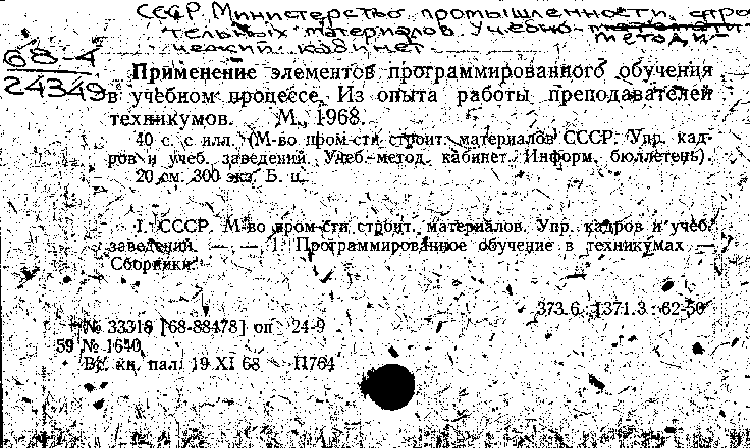 СССР. Министерство промышленности строи-
тельных материалов. Учебно-методи-
ческий кабинет
68-4
24349
Применение элементов программированного обучения
в учебном процессе. Из опыта работы преподавателей
техникумов. М., 1968.
40 с. с илл. (М-во пром-сти строит. материалов СССР. Упр. кад-
ров и учеб. заведений. Учеб.-метод. кабинет. Информ. бюллетень).
20 см. 300 экз. Б. ц.
I. СССР. М-во пром-сти строит. материалов. Упр. кадров и учеб.
заведений. — — 1. Программированное обучение в техникумах —
Сборники.
373.6 : [371.3 : 62-50
№ 33318 [68-88478] оп 24-9
59 № 1640
Вс. кн. пал. 19 XI 68 П764